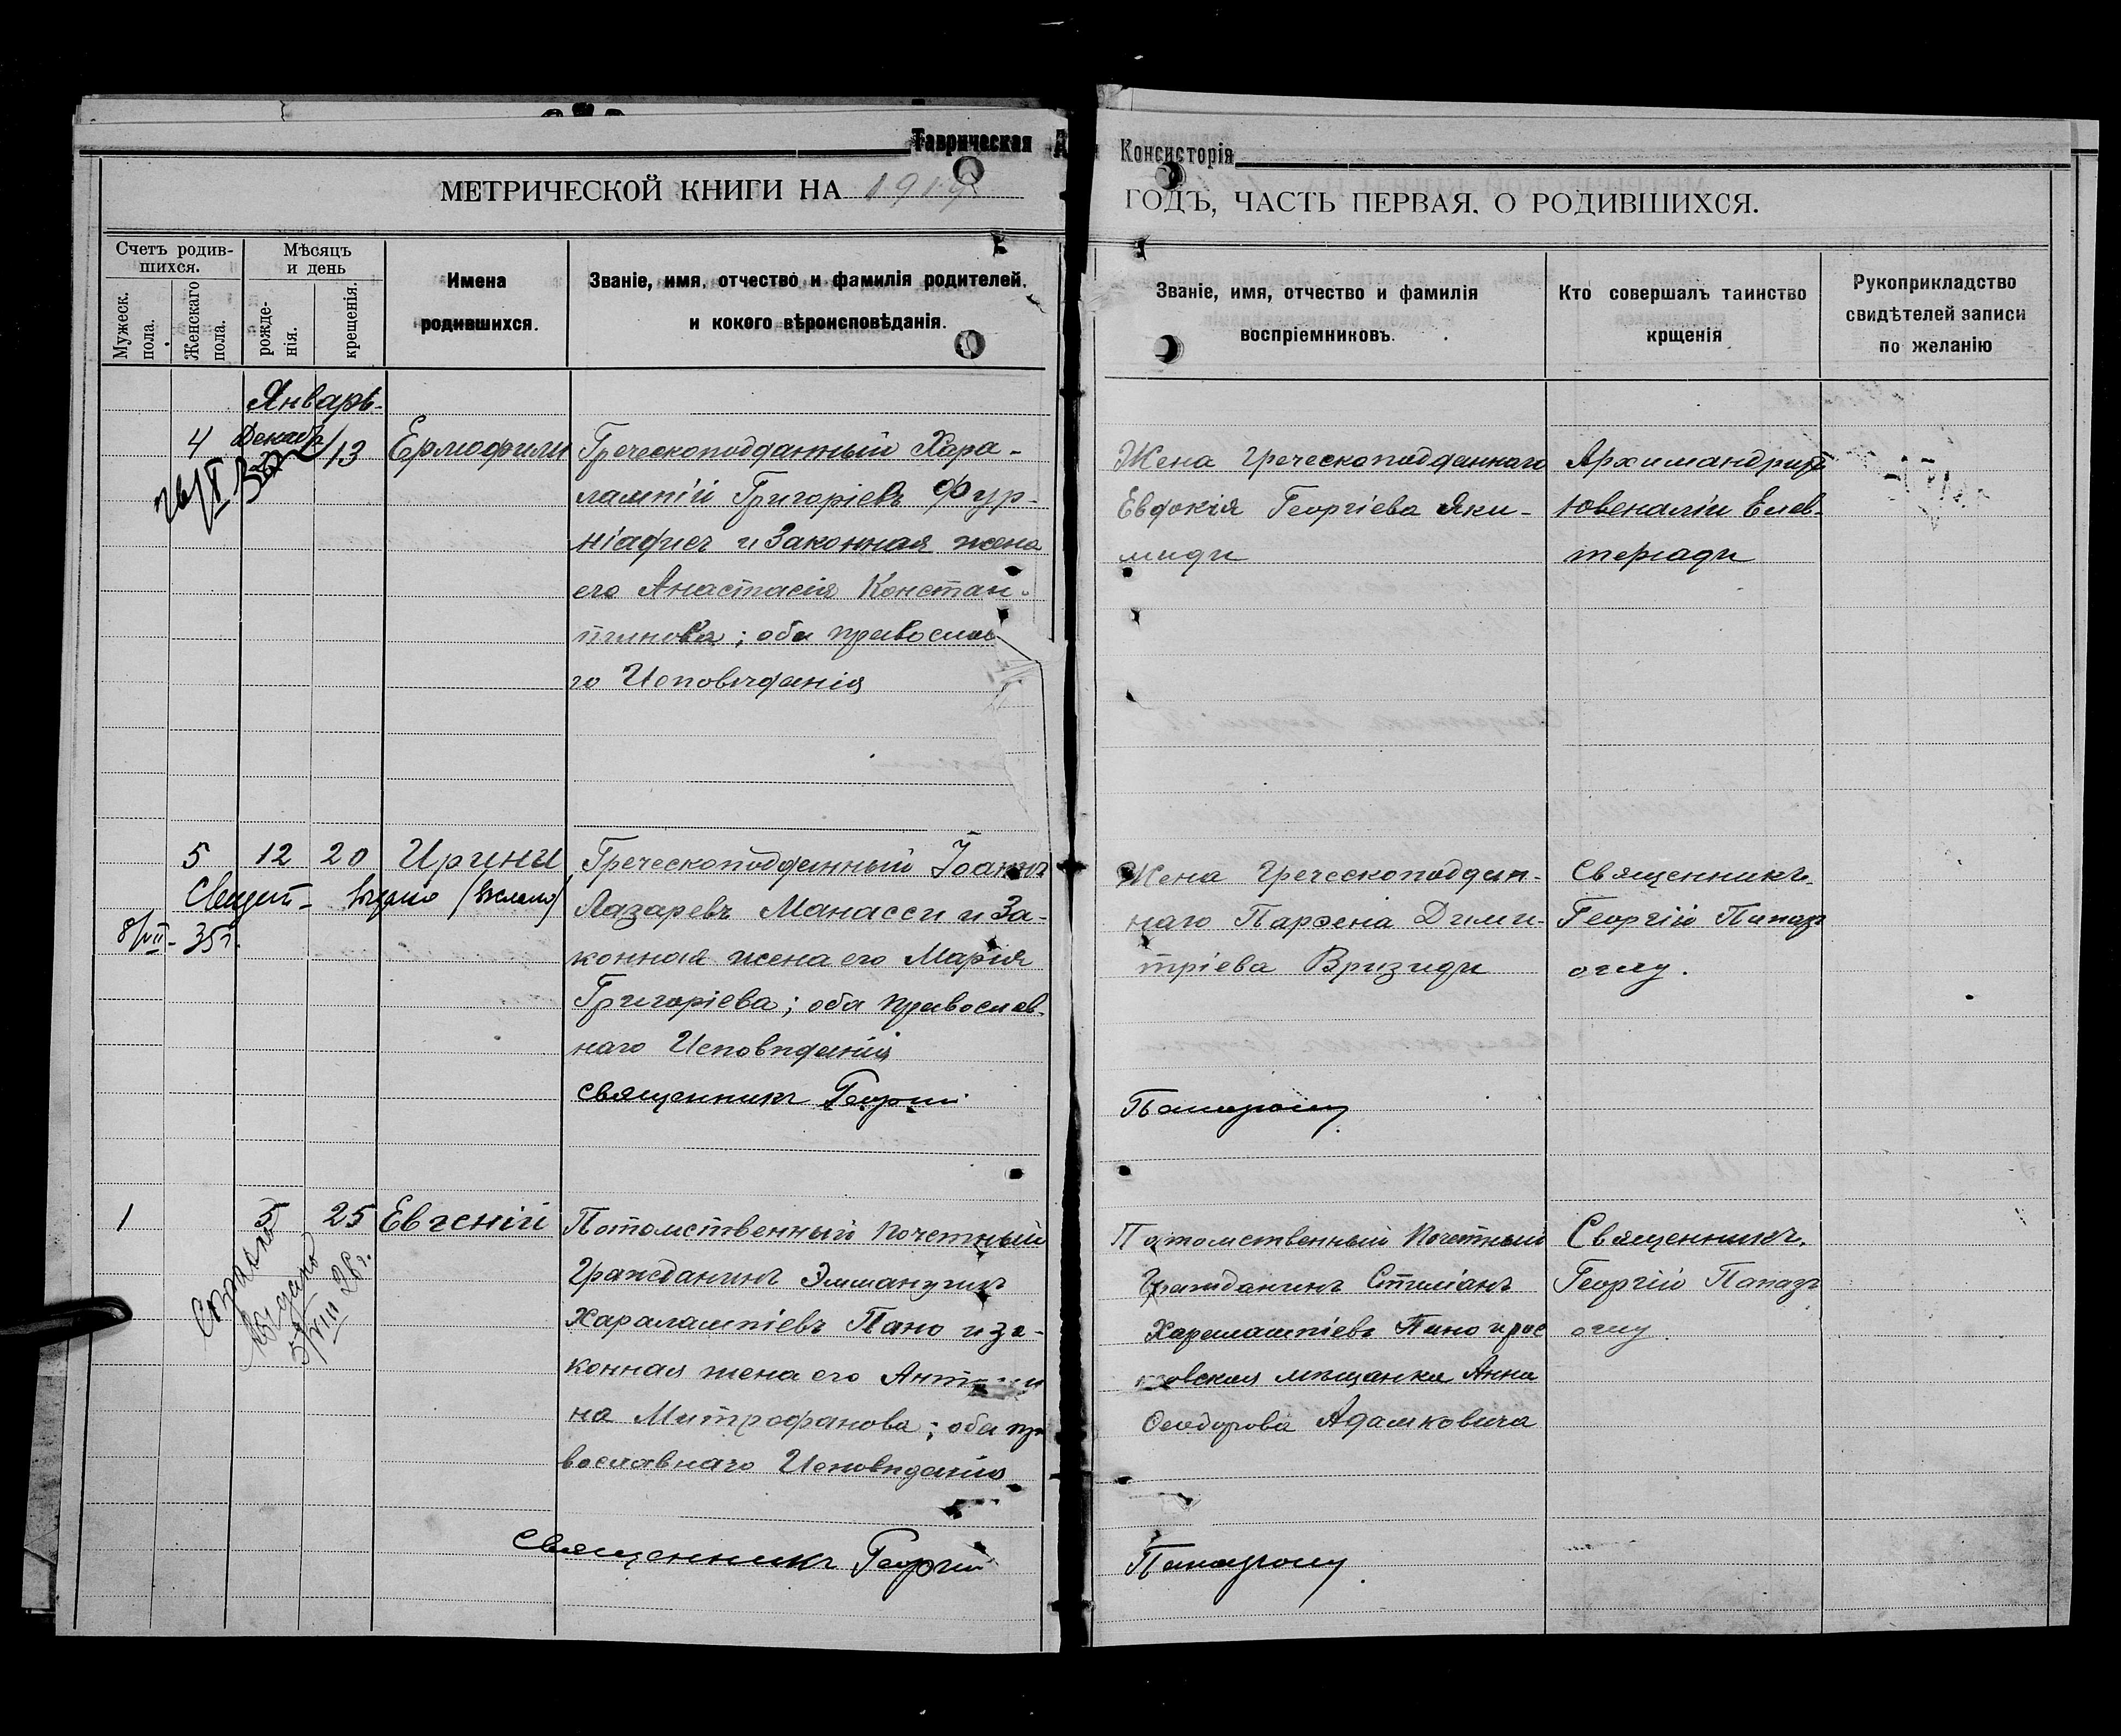 Таврическая Консисторія
МЕТРИЧЕСКОЙ КНИГИ НА 1919 ГОДЪ, ЧАСТЬ ПЕРВАЯ, О РОДИВШИХСЯ.
Счетъ родив-
шихся.
Мужеск.
пола.
Женскаго
пола.
Мѣсяцъ
и день
рожде-
нія.
крещенія.
Имена
родившихся.
Званіе, имя, отчество и фамилія родителей,
и кокого вѣроисповѣданія.
Званіе, имя, отчество и фамилія
воспріемниковъ.
Кто совершалъ таинство
крщенія
Рукоприкладство
свидѣтелей записи
по желанію
Январь
4
13
Греческоподданный Хара-
лампій Григоріевъ Фур-
ніадисъ и Законная жена
его Анастасія Констан-
тинова; оба православ
го Исповѣданія
Жена Греческоподданнаго
Евдокія Георгіева Яки-
миди
Архимандритъ
Ювеналій Елев-
теріади
5 12 20 Ирины
выдано
8/VII- 35г.
Греческоподданный Іоаннъ
Лазаревъ Манасси и За-
конная жена его Марія
Григоріева; оба православ-
наго Исповѣданія
Священникъ Георгій
Жена Греческоподдан-
наго Парѳена Дими-
тріева Вризиди
Священникъ
Георгій Папаз
оглу.
Папазоглу
1 5 25 Евгеній
выдано
VIII 28г.
Потомственный Почетный
Гражданинъ Эммануилъ
Харалампіевъ Пано и за-
конная жена его
на Митрофанова; оба пра
вославнаго Исповѣданія
Священникъ Георгій
Потомственный Почетный
Гражданинъ Стиліанъ
Харалампіевъ Пано и
мѣщанка Анна
Ѳеодорова Адамковича
Священникъ
Георгій Папаз
оглу.
Папазоглу